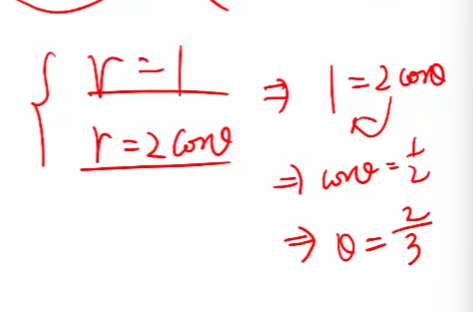 { r = 1 ⇒ 1 = 2 cosθ
r = 2 cosθ
⇒ cosθ = 1/2
⇒ θ = 2/3